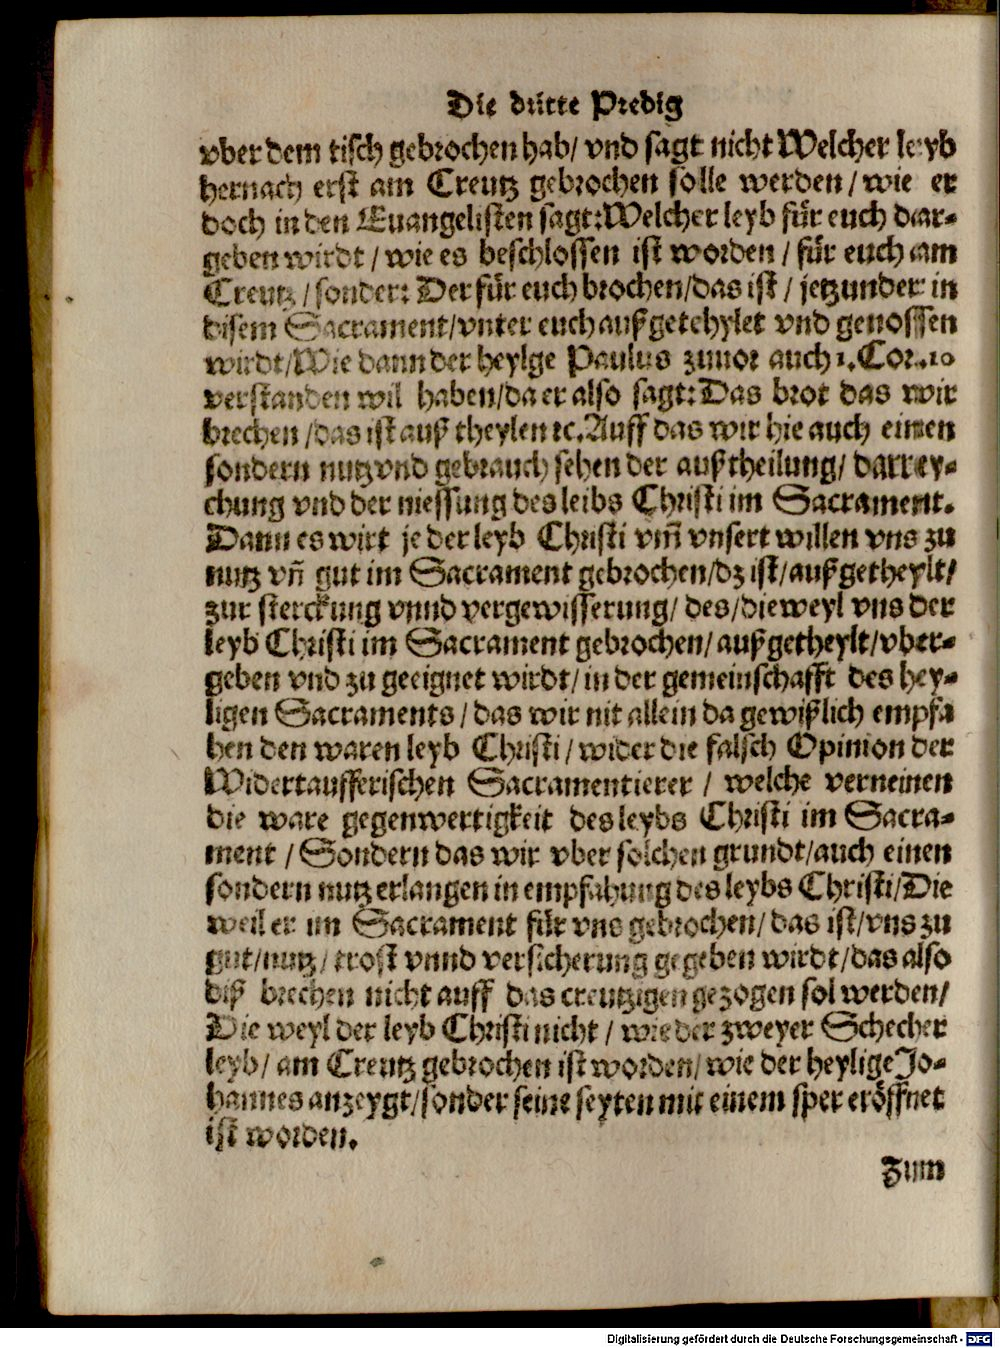 Die dritte Predig
vber dem tisch gebrochen hab/ vnd sagt nicht Welcher leyb
hernach erst am Creutz gebrochen solle werden/ wie er
doch in den Euangelisten sagt: Welcher leyb für euch dar-
geben wirdt/ wie es beschlossen ist worden/ für euch am
Creutz/ sonder: Der für euch brochen/ das ist/ jetzunder in
disem Sacrament/ vnter euch außgetehylet vnd genossen
wirdt/ Wie dann der heylge Paulus zuuor auch 1. Cor. 10
verstanden wil haben/ da er also sagt: Das brot das wir
brechen/ das ist auß theylen ꝛc. Auff das wir hie auch einen
sondern nutz vnd gebrauch sehen der außtheilung/ darrey-
chung vnd der niessung des leibs Christi im Sacrament.
Dann es wirt je der leyb Christi vm̃ vnsert willen vns zu
nutz vñ gut im Sacrament gebrochen/ dz ist/ außgetheylt/
zur sterckung vnnd vergewisserung/ des/ dieweyl vns der
leyb Christi im Sacrament gebrochen/ außgetheylt/ vber-
geben vnd zu geeignet wirdt/ in der gemeinschafft des hey-
ligen Sacraments/ das wir nit allein da gewißlich empfa
hen den waren leyb Christi/ wider die falsch Opinion der
Widertaufferischen Sacramentierer/ welche verneinen
die ware gegenwertigkeit des leybs Christi im Sacra-
ment/ Sondern das wir vber solchen grundt/ auch einen
sondern nutz erlangen in empfahung des leybs Christi/ Die
weil er im Sacrament für vns gebrochen/ das ist/ vns zu
gut/ nutz/ trost vnnd versicherung gegeben wirdt/ das also
diß brechen nicht auff das creutzigen gezogen sol werden/
Die weyl der leyb Christi nicht/ wie der zweyer Schecher
leyb/ am Creutz gebrochen ist worden/ wie der heylige Jo-
hannes anzeygt/ sonder seine seyten mit einem sper eröffnet
ist worden.
Zum
Digitalisierung gefördert durch die Deutsche Forschungsgemeinschaft - DFG